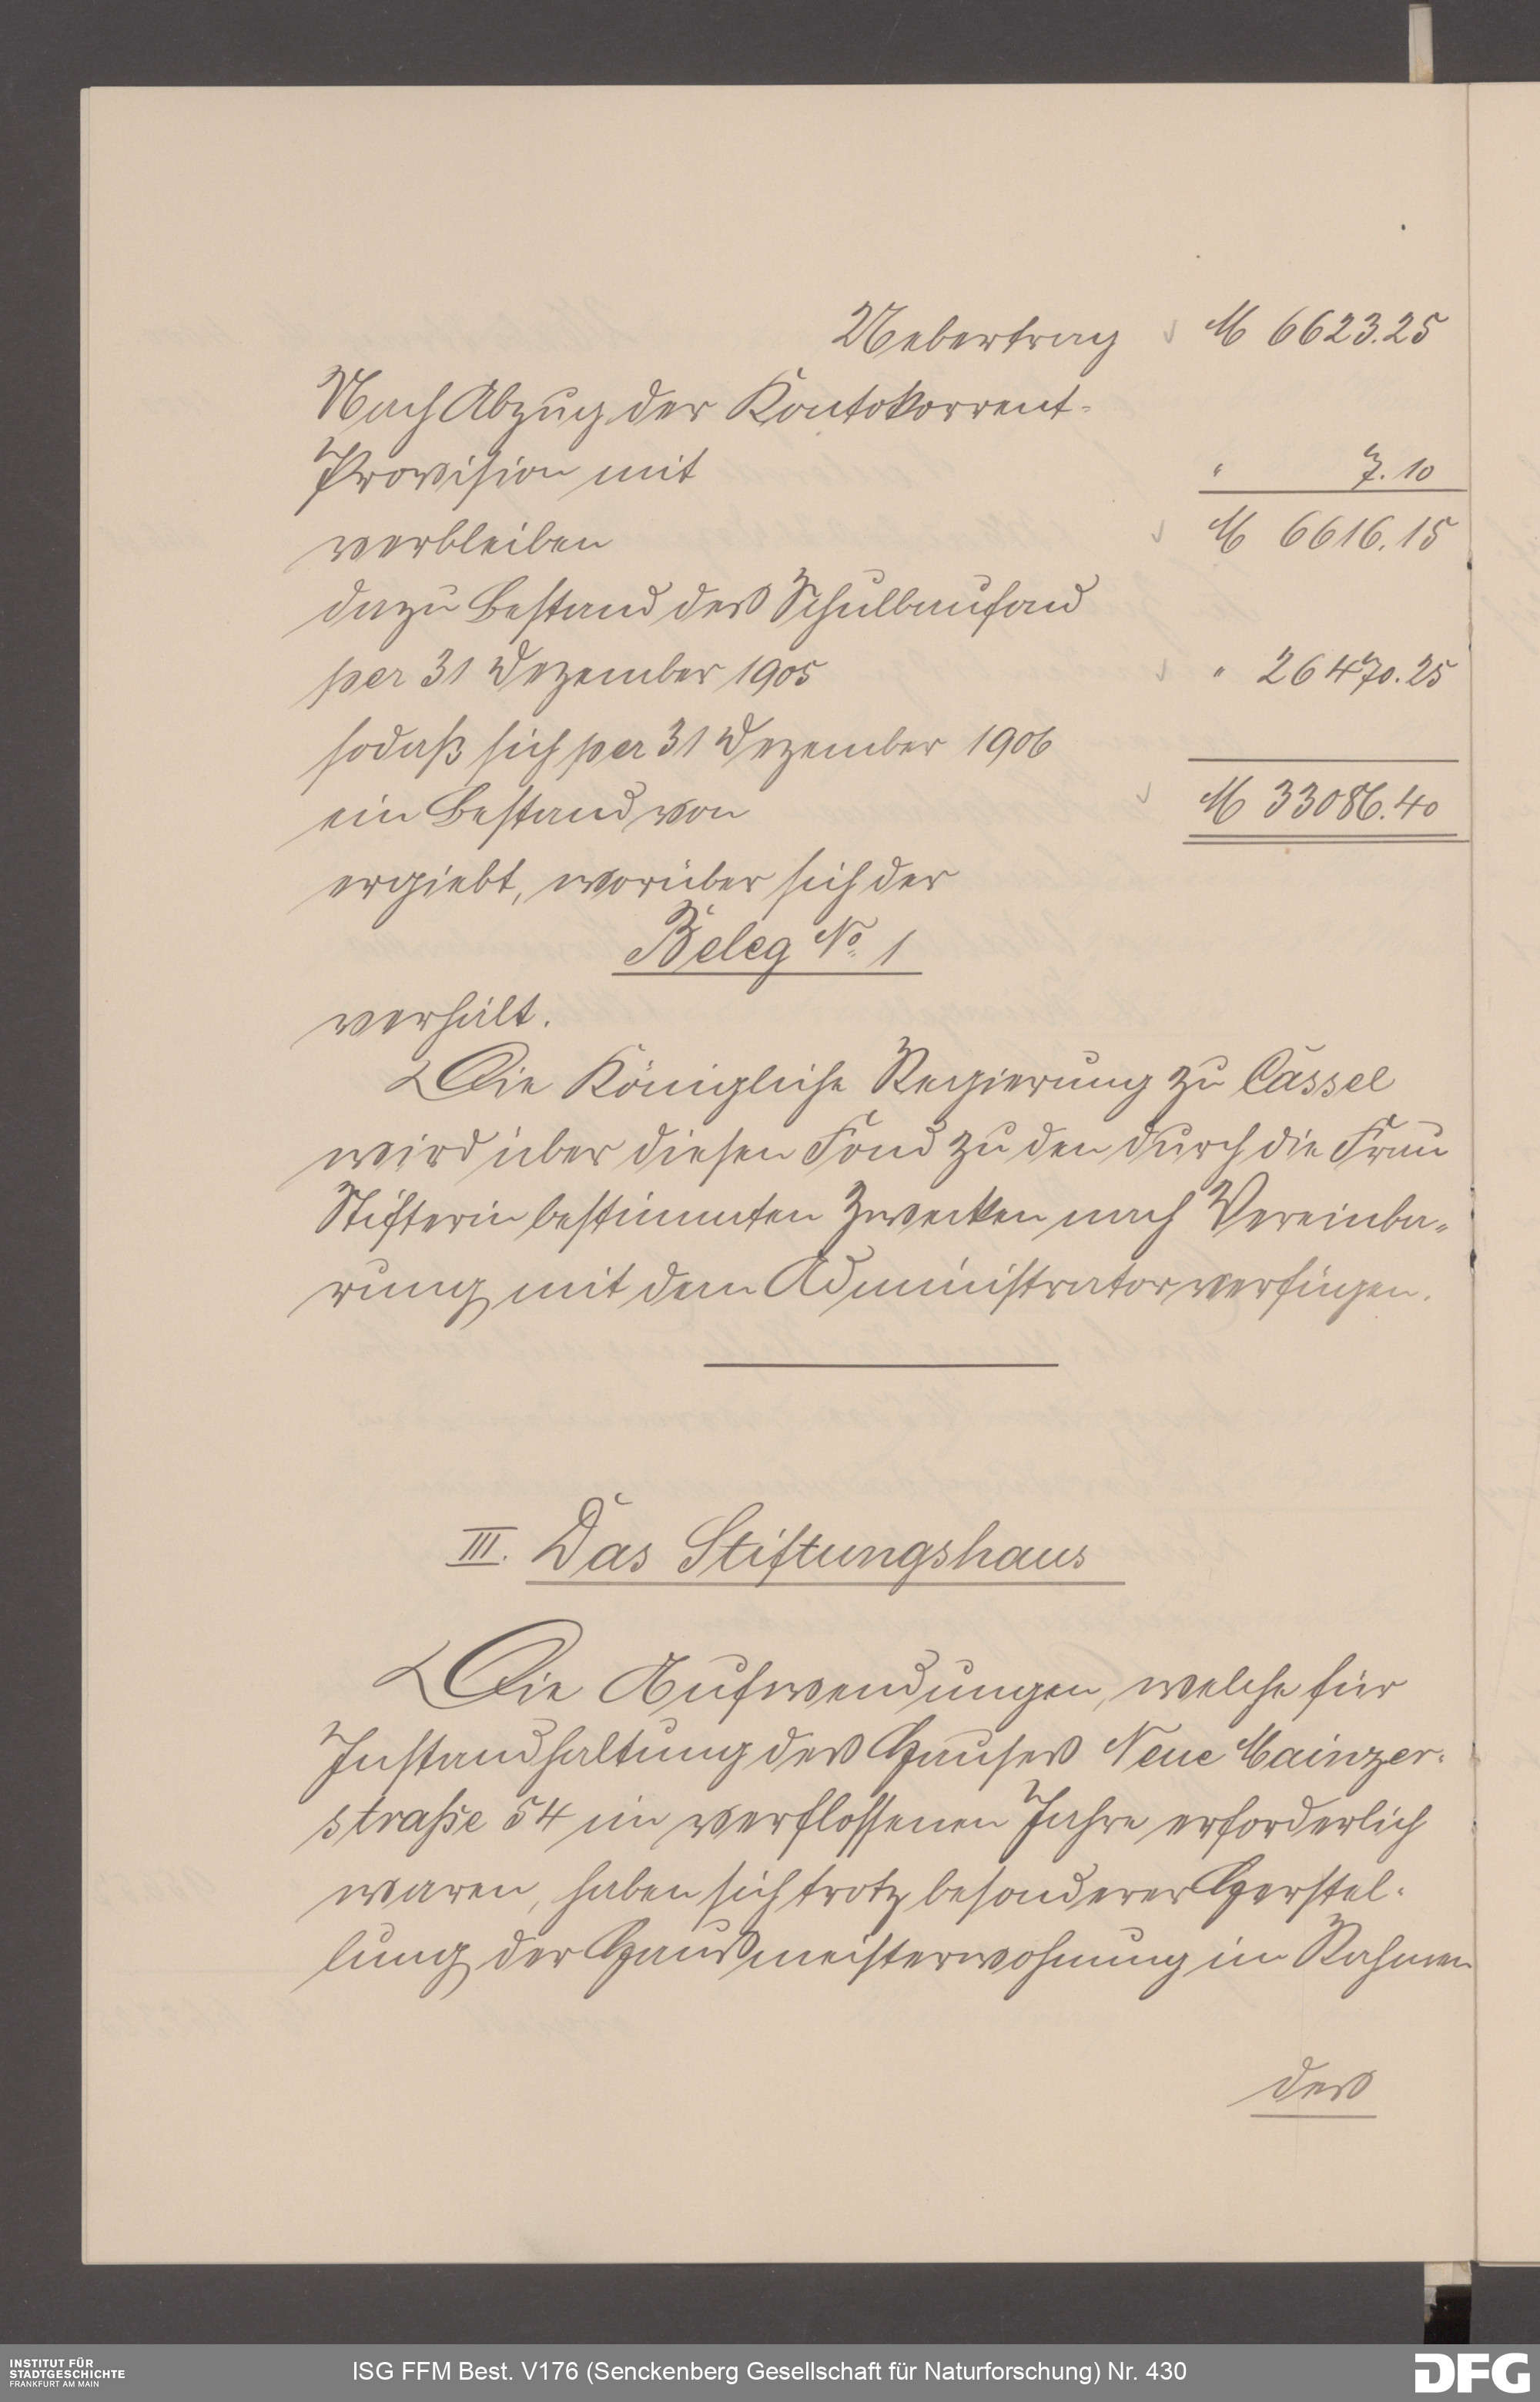 Uebertrag M 6623.25
Nach Abzug der Kontokorrent-
Provision mit " 7.10
verbleiben M 6616.15
dazu Bestand des Schulbaufond
per 31 Dezember 1905 " 26470.25
sodaß sich per 31 Dezember 1906
ein Bestand von M 33086.40
ergiebt, worüber sich der
Beleg No. 1
verhält.
Die Königliche Regierung zu Cassel
wird über diesen Fond zu den durch die Frau
Stifterin bestimmten Zwecken nach Vereinba-
rung mit dem Administrator verfügen.
III. Das Stiftungshaus
Die Aufwendungen, welche für
Instandhaltung des Hauses Neue Mainzer-
straße 54 im verflossenen Jahre erforderlich
waren, haben sich trotz besonderer Herstel-
lung der Hausmeisterwohnung im Rahmen
des
INSTITUT FÜR
STADTGESCHICHTE
FRANKFURT AM MAIN
ISG FFM Best. V176 (Senckenberg Gesellschaft für Naturforschung) Nr. 430
DFG